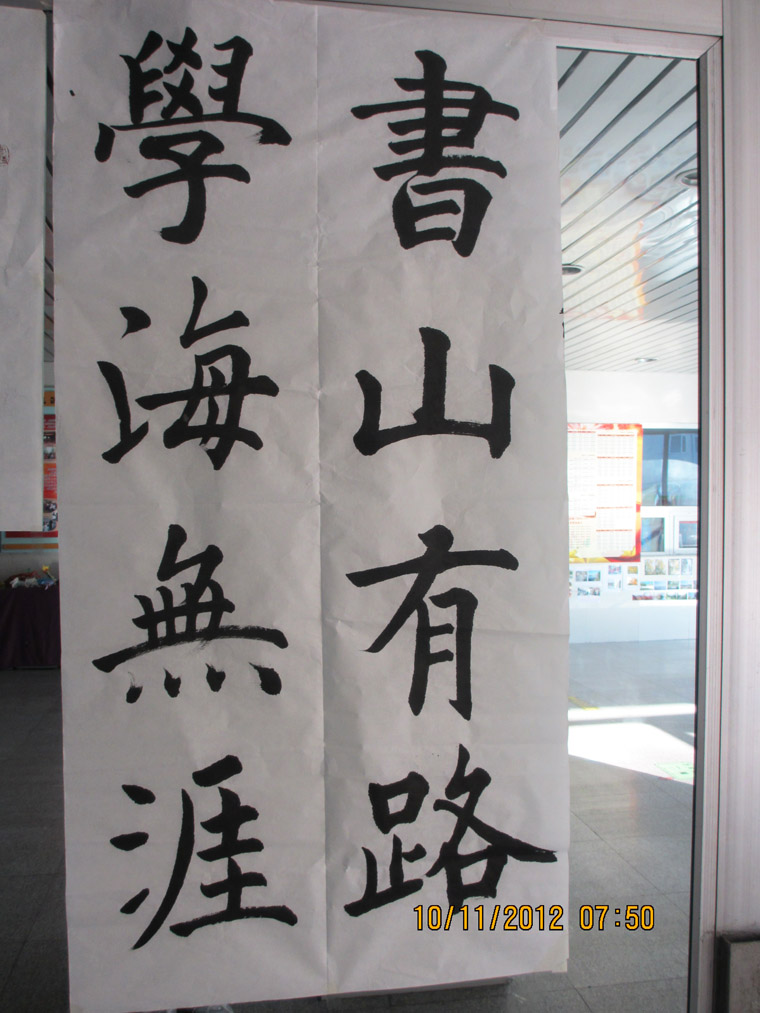 書山有路
學海無涯
10/11/2012 07:50